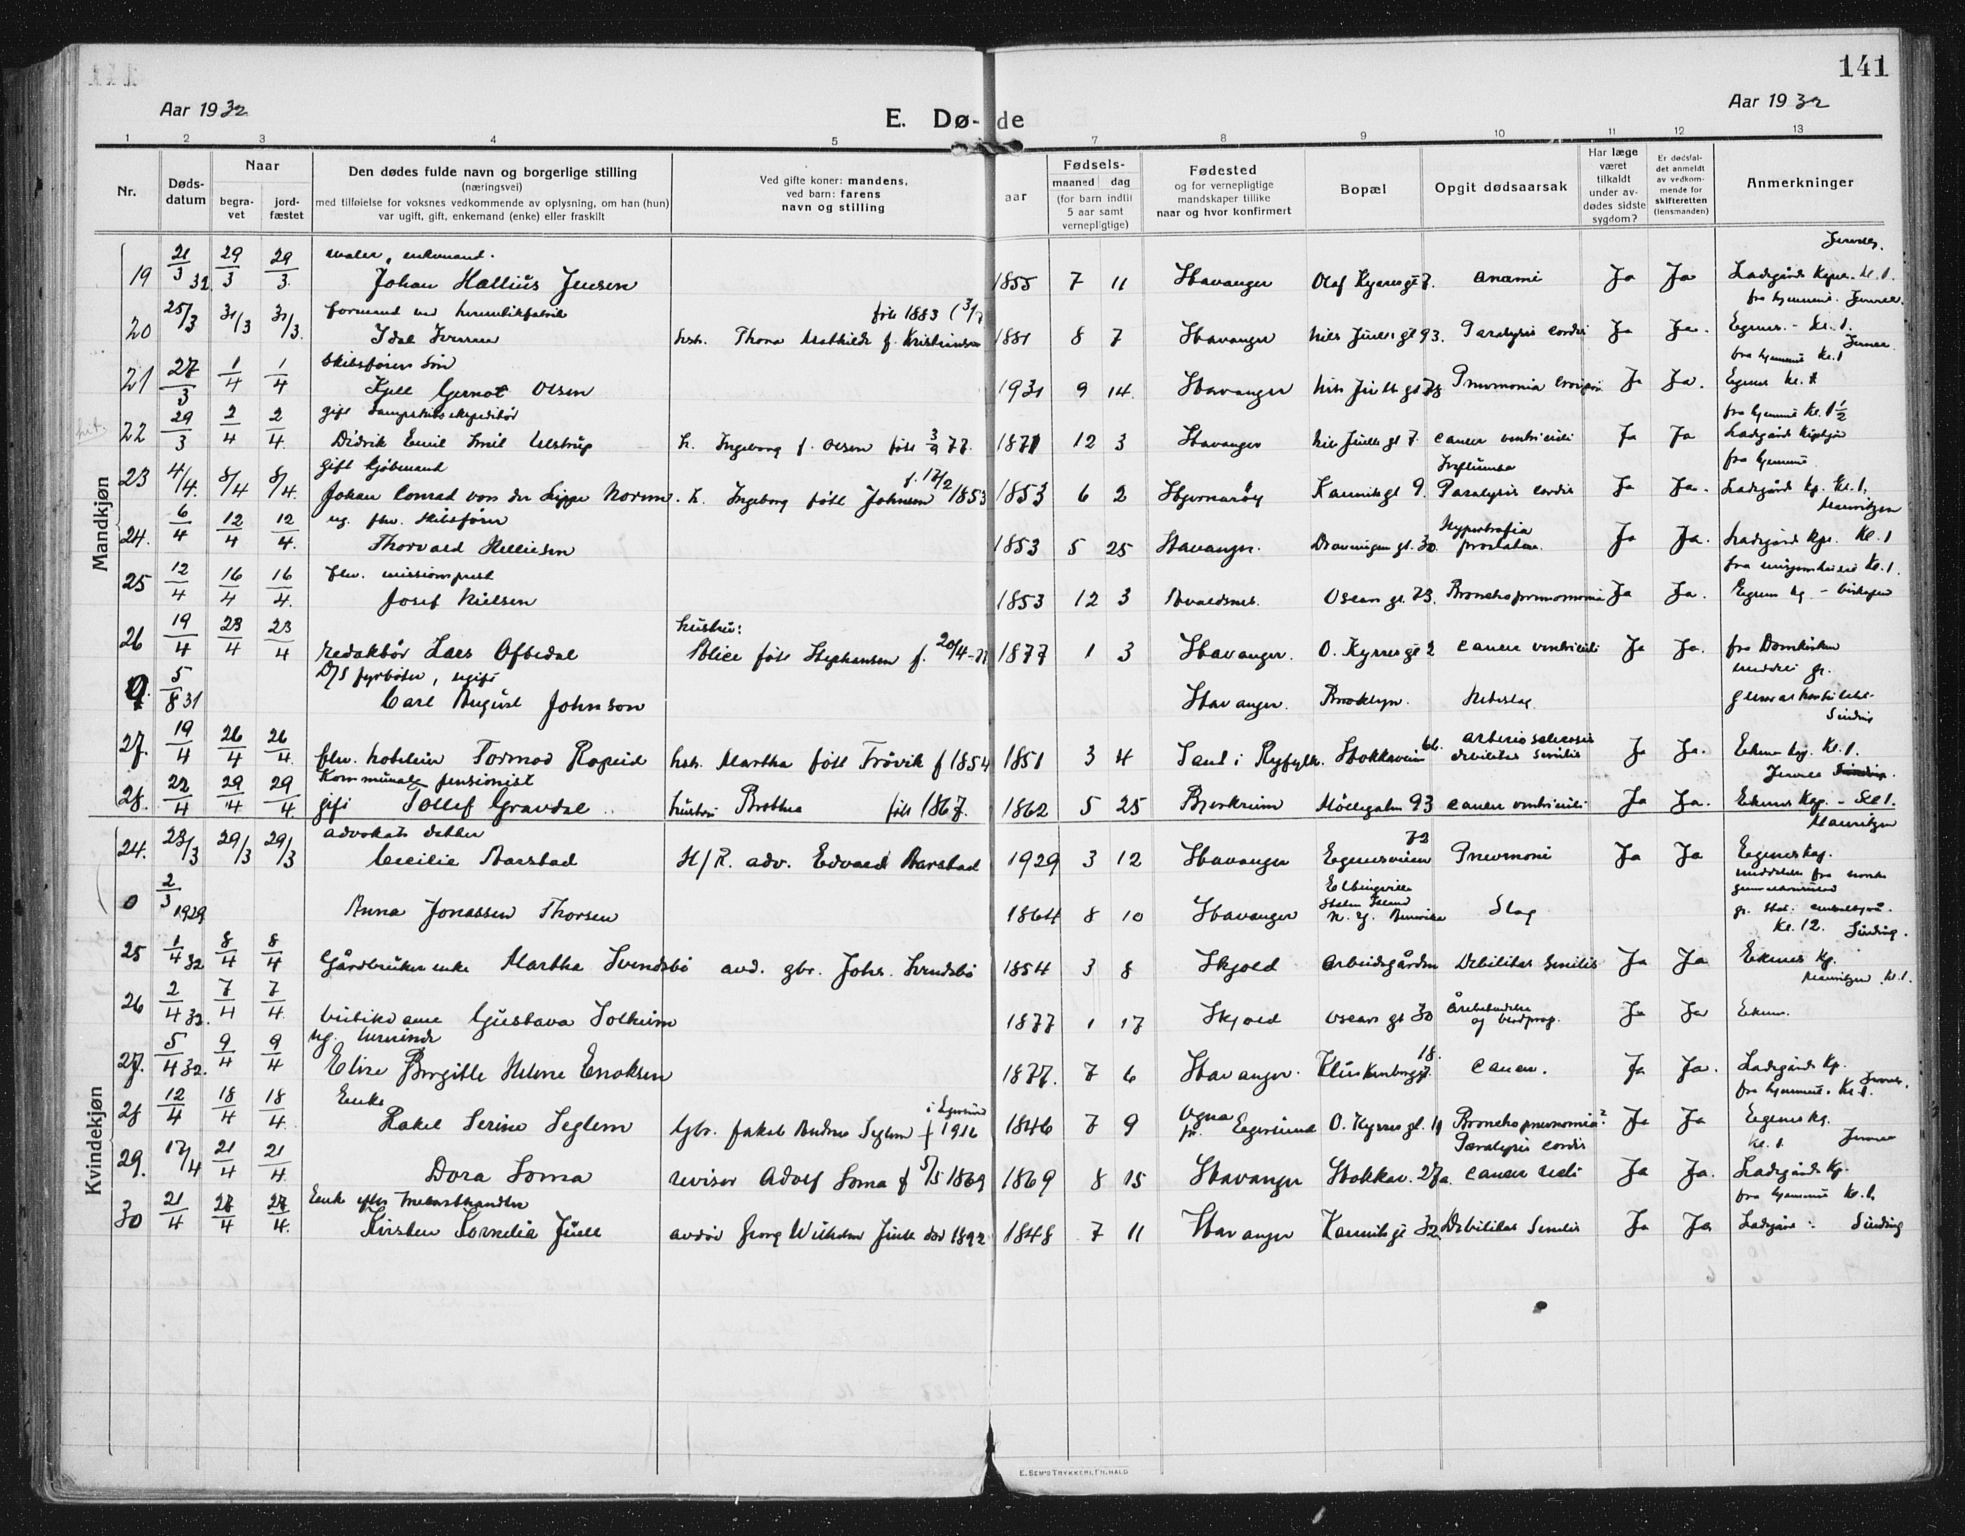 141
Aar 1932
E. Dø-de
Aar 1932
1 2 3 4 5 7 8 9 10 11 12 13
Nr.
Døds-datum
Naar
begra-vet
jord-fæstet
Den dødes fulde navn og borgerlige stilling
(næringsvei)
med tilføielse for voksnes vedkommende av oplysning, om han (hun)
var ugift, gift, enkemand (enke) eller fraskilt
Ved gifte koner: mandens,
ved barn: farens
navn og stilling
aar
Fødsels-
maaned dag
(for barn indtil
5 aar samt
vernepligtige)
Fødested
og for vernepligtige
mandskaper tillike
naar og hvor konfirmert
Bopæl
Opgit dødsaarsak
Har læge
været
tilkaldt
under av-
dødes sidste
sygdom?
Er dødsfal-
det anmeldt
av vedkom-
mende for
skifteretten
(lensmanden)
Anmerkninger
Mandkjøn
19 21/3 32 29/3 29/3 maler, enkemand. Johan Hallius Jensen 1855 7 11 Stavanger Olaf Kyrresgt 7. anæmi Ja Ja
20 25/3 31/3 31/3 formand ved hermetikfabrik Idal Iversen hstr. Thora Mathilde f. Kristiansen født 1883 1881 8 7 Stavanger Nils Juels gt 93. Paralysis cordis Ja Ja. Egenes - kl. 1.
21 27/3 1/4 1/4 Skibsførers søn Kjell Gernot Olsen 1931 9 14. Stavanger Nils Juels gt 78 Pneumonia Ja Ja. Egenes kl. 1
22 29/3 2/4 2/4 gift Dampskibsekspeditør Didrik Emil Smil Ulstrup h. Ingeborg f. Olsen født 3/9 77. 1871 12 3 Stavanger Nils Juels gt 7. cancer ventriculi Ja Ja fra hjemmet kl. 1 1/2
23 4/4. 8/4 8/4. gift kjøbmand Johan Conrad von der Lippe Norem. h. Ingeborg født Johnsen f. 12/2 1853 1853 6 2 Stjernarøy Kannikgt 9. Influensa Paralysis cordis Ja Ja. fra hjemmet Ladegård kp. kl. 1.
24. 6/4 12/4 12/4. ug. fhv. Skibsfører Thorvald Helliesen 1853 5 25 Stavanger. Dronningens gt. 30. Hypertrofia prostatae. Ja Ja. Mauritzen Ladegård kp. kl. 1
25 12/4 16/4 16/4. fhv. missionsprest Josef Nielsen 1853 12 3 Avaldsnes. Oscars gt. 73. Bronchopneumonia Ja Ja.
26 19/4 23/4 23/4 redaktør Lars Oftedal hustru: Alice født Stephansen f. 20/4- 1877 1 3 Stavanger. O. Kyrres gt 2 cancer ventriculi Ja Ja. fra Domkirken
0. 5/8 31 D/S fyrbøter, ugift Carl August Johnson Stavanger. Brooklyn. Heteslag meddel. gr. generalkonsulatet. Sinding
27. 19/4 26/4 26/4. fhv. hoteleier Tormod Ropeid hstr. Martha født Trövik f 1854 1851 3 4 Sand i Ryfylke. Stokkaveien 66. arteriosclerosis debilitas senilis Ja Ja. kl. 1.
28. 22/4 29/4 29/4. Kommunale pensionist gift Tollef Gravdal hustru Brothea født 1867. 1862 5 25 Bjerkreim Möllegaten 93 cancer ventriculi Ja Ja.
Kvindekjøn
24. 23/3 29/3 29/3 advokats datter Cecilie Aarstad H/R. adv. Edvard Aarstad 1929 3 12 Stavanger Egenesveien 72 Pneumoni Ja Ja Mauritzen Egenes kap.
0 2/3 1929 Anna Jonassen Thorsen 1864 8 10 Stavanger Eltingville Staten Island N. Y. Amerika Slag meddelelse fra norske generalkonsulat
25 1/4 32 8/4 8/4 Gårdbruker enke Martha Svendsbö avd. gbr. Johs. Svendsbö 1854 3 8 Skjold Arbeidsgården Debilitas senilis Ja Ja kl. 12. Sinding.
26 2/4 32. 7/4 7/4. butikdame Gustava Solheim 1877 1 17 Skjold Oscars gt 30 Årebetendelse og blodprop. Ja Ja Mauritzen kl. 1.
27. 5/4 32. 9/4 9/4 ug. lærerinde Elise Birgitte Helene Enoksen 1877. 7 6 Stavanger. Klinkenberggt. 18. cancer. Ja Ja. Ladegårds kp.
28 12/4 18/4 18/4. Enke Rakel Serine Seglem Gbr. Jakob Andreas Seglem f 1916 i Egersund 1846 7 9 Ogna pr. Egersund O. Kyrres gt. 11 Bronchopneumonia? Paralysis cordis Ja Ja fra hjemmet. kl. 1. Egenes kp. kl. 1
29. 17/4 21/4 21/4. Dora Soma revisor Adolf Soma f 5/5 1869 1869 8 15 Stavanger Stokkav. 27a. cancer Ja Ja. Ladegårds kp. fra hjemmet kl. 1.
30 21/4 27/4 27/4. Enke efter Kirsten Cornelia Juell avdøe Georg Wilhelm Juell død 1892 1848 7 11 Stavanger Kannikgt 32. Debilitas senilis Ja Ja Sinding
E. SEM'S TRYKKERI, FR.HALD